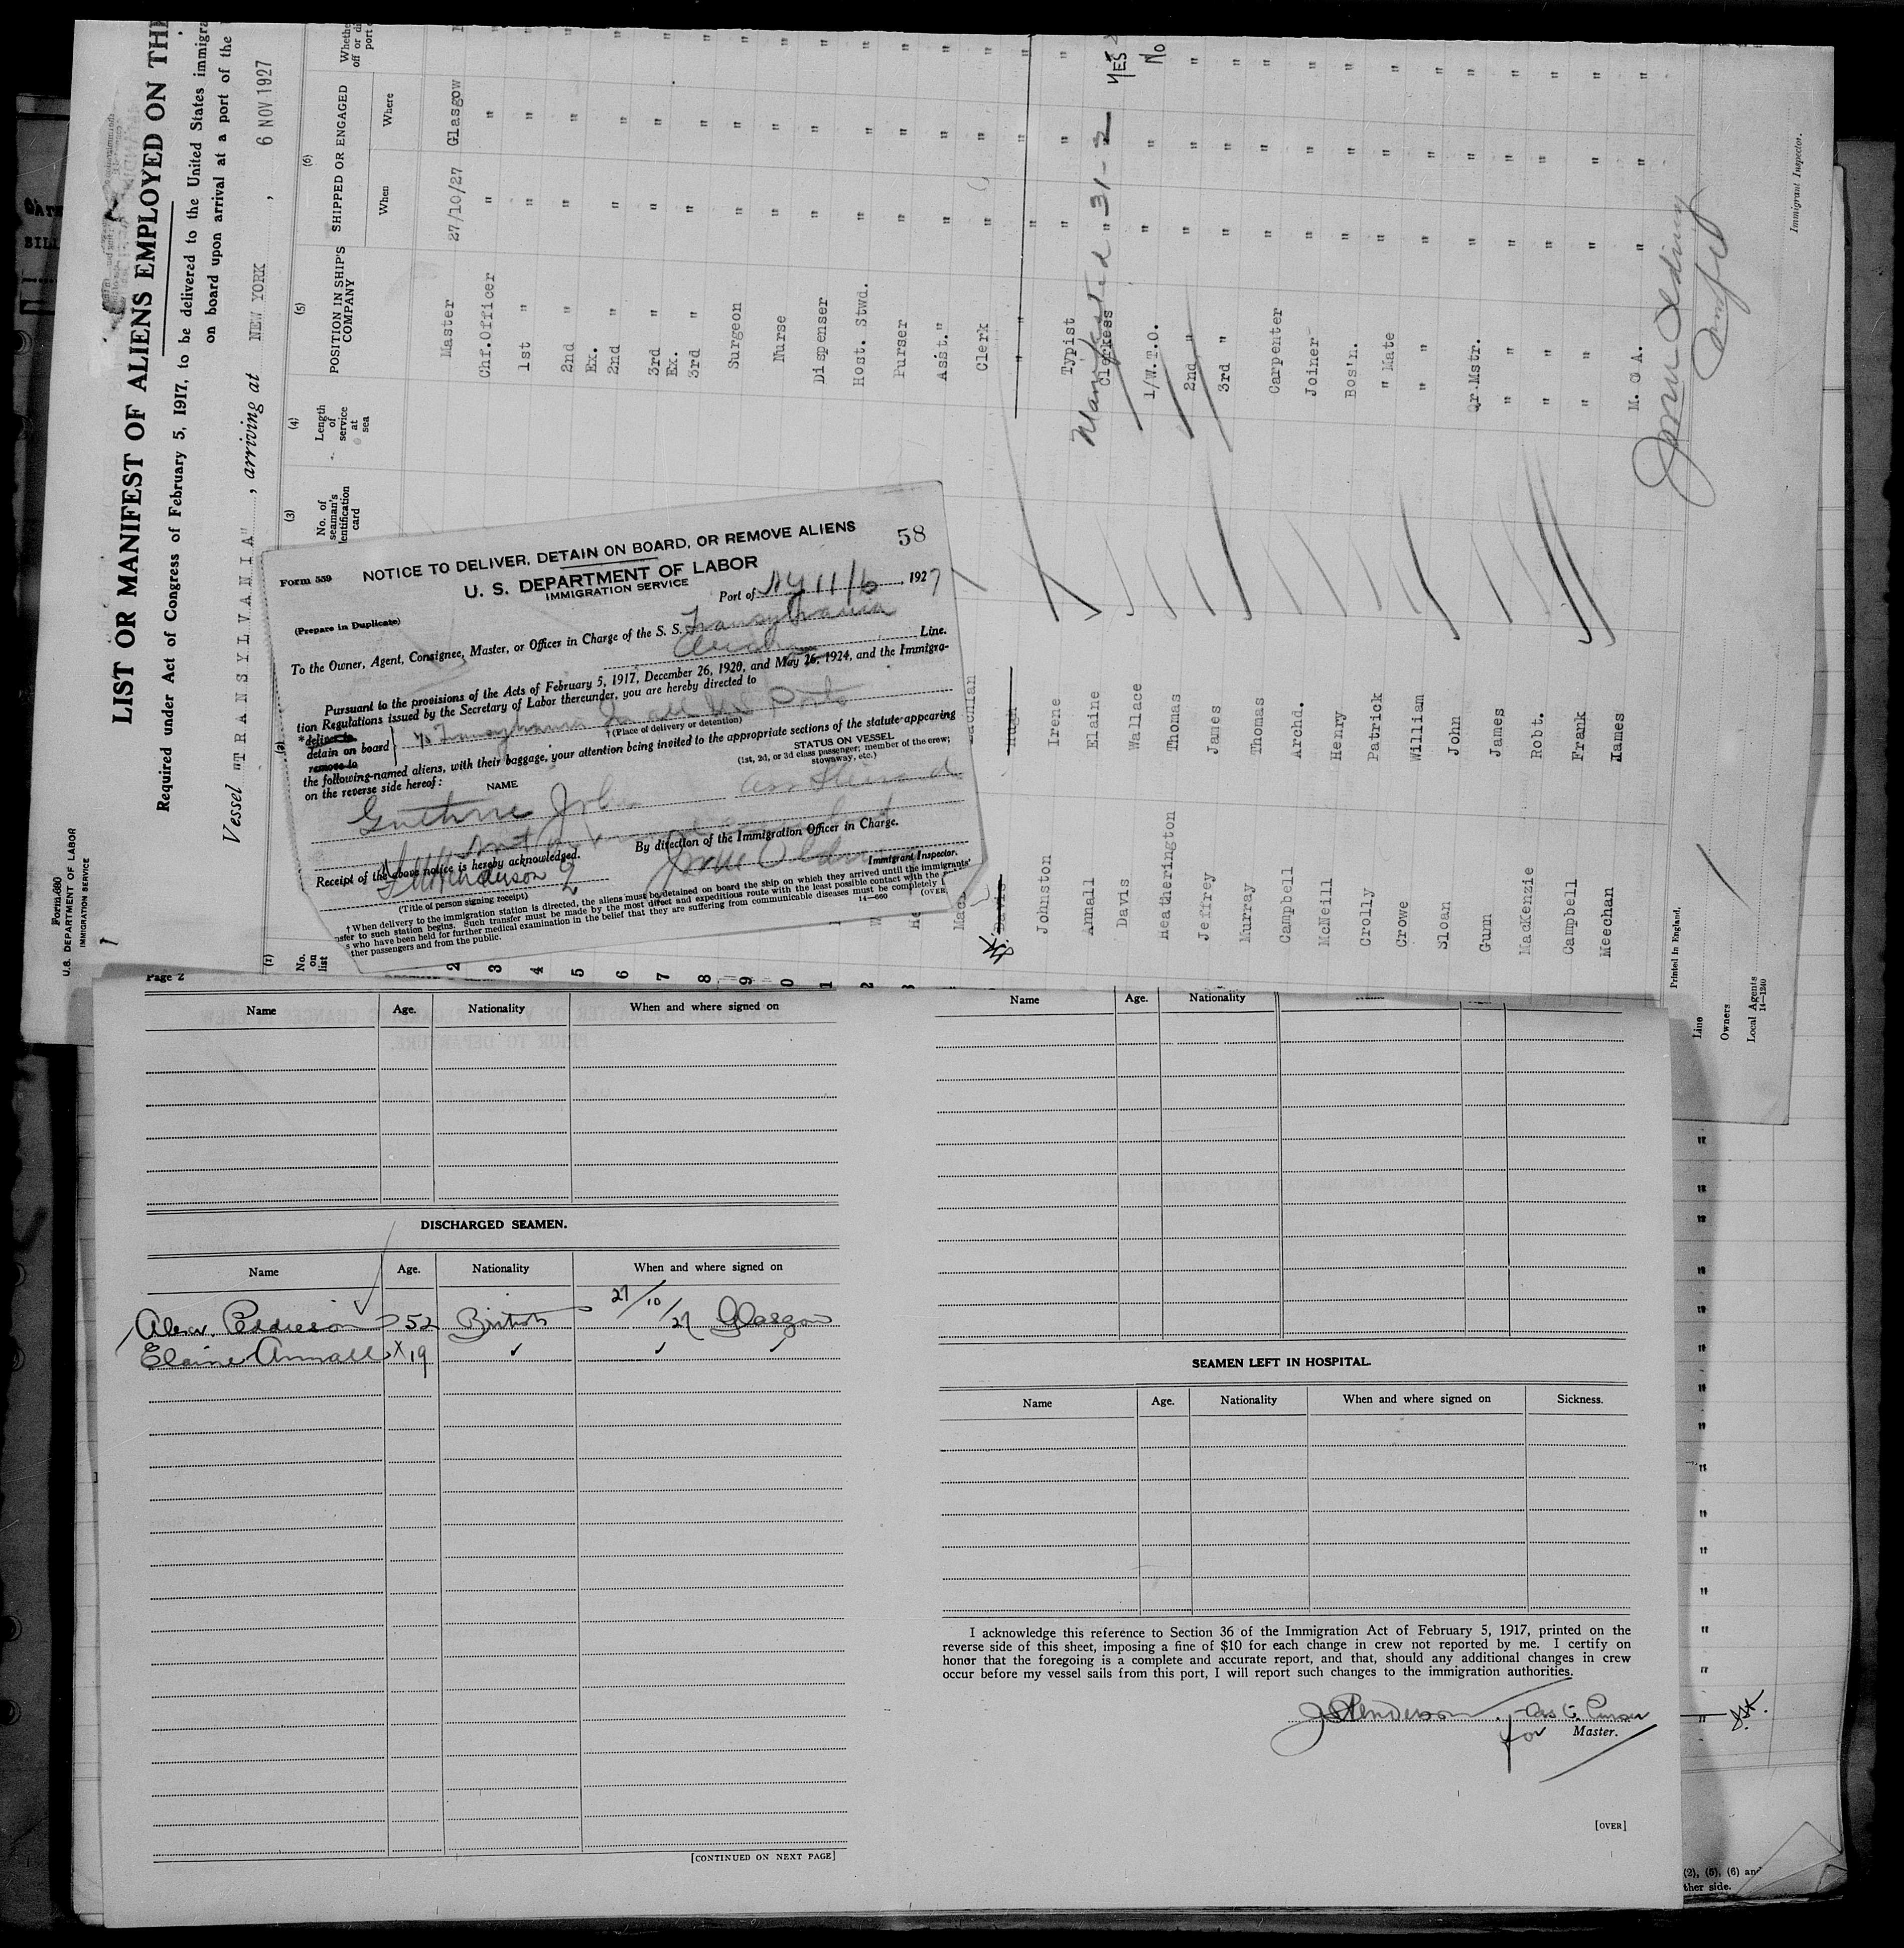 Form 680
U. S. DEPARTMENT OF LABOR
IMMIGRATION SERVICE
LIST OR MANIFEST OF ALIENS EMPLOYED ON THE
Required under Act of Congress of February 5, 1917, to be delivered to the United States immigra
on board upon arrival at a port of the
Vessel "TRANSYLVANIA", arriving at NEW YORK, 6 NOV 1927
(1) (2) (3) (4) (5) (6)
No. on list
No. of seaman's identification card
Length of service at sea
POSITION IN SHIP'S COMPANY
SHIPPED OR ENGAGED
When Where
Master 27/10/27 Glasgow
Chf.Officer " "
1st " " "
2nd " " "
Ex. 2nd " " "
3rd " " "
Ex. 3rd " " "
Surgeon " "
Nurse " "
Dispenser " "
Host. Stwd. " "
Purser " "
Asst." " "
Clerk " "
Davis Hugh " " "
Johnston Irene Typist " "
Annall Elaine Clerkess " YES
Manifested 31-2
Davis Wallace 1/W.T.O. " " No
Heatherington Thomas 2nd " " " "
Jeffrey James 3rd " " " "
Murray Thomas Carpenter " " "
Campbell Archd. Joiner " " "
McNeill Henry Bos'n. " " "
Crolly Patrick " Mate " " "
Crowe William " " " " "
Sloan John Qr.Mstr. " " "
Gunn James " " " " "
MacKenzie Robt. " " " " "
Campbell Frank " " " " "
Meechan James M. @ A. " " "
2
3
4
5
6
7
8
9
0
1
2
Immigrant Inspector.
Printed in England.
Line
Owners
Local Agents
14—1240
Form 559
58
NOTICE TO DELIVER, DETAIN ON BOARD, OR REMOVE ALIENS
U. S. DEPARTMENT OF LABOR
IMMIGRATION SERVICE
(Prepare in Duplicate)
Port of NY 11/6, 1927
To the Owner, Agent, Consignee, Master, or Officer in Charge of the S. S. Transylvania
Line.
Pursuant to the provisions of the Acts of February 5, 1917, December 26, 1920, and May 26, 1924, and the Immigra-
tion Regulations issued by the Secretary of Labor thereunder, you are hereby directed to
*deliver to
detain on board
remove to
Transylvania in all US Ports
†(Place of delivery or detention)
the following-named aliens, with their baggage, your attention being invited to the appropriate sections of the statute appearing
on the reverse side hereof:
NAME
STATUS ON VESSEL
(1st, 2d, or 3d class passenger; member of the crew; stowaway, etc.)
Guthrie John
Receipt of the above notice is hereby acknowledged.
By direction of the Immigration Officer in Charge.
Immigrant Inspector.
(Title of person signing receipt)
† When delivery to the immigration station is directed, the aliens must be detained on board the ship on which they arrived until the immigrants'
nsfer to such station begins. Such transfer must be made by the most direct and expeditious route with the least possible contact with the
s who have been held for further medical examination in the belief that they are suffering from communicable diseases must be completely
ther passengers and from the public.
14—660
(OVER)
Page 2
Name Age. Nationality When and where signed on
DISCHARGED SEAMEN.
Name Age. Nationality When and where signed on
52 British 27/10/27 Glasgow
Elaine Annall x 19 ✓ ✓ ✓
[CONTINUED ON NEXT PAGE]
Name Age. Nationality
SEAMEN LEFT IN HOSPITAL.
Name Age. Nationality When and where signed on Sickness.
I acknowledge this reference to Section 36 of the Immigration Act of February 5, 1917, printed on the
reverse side of this sheet, imposing a fine of $10 for each change in crew not reported by me. I certify on
honor that the foregoing is a complete and accurate report, and that, should any additional changes in crew
occur before my vessel sails from this port, I will report such changes to the immigration authorities.
for Master.
[OVER]
(2), (5), (6) and
ther side.